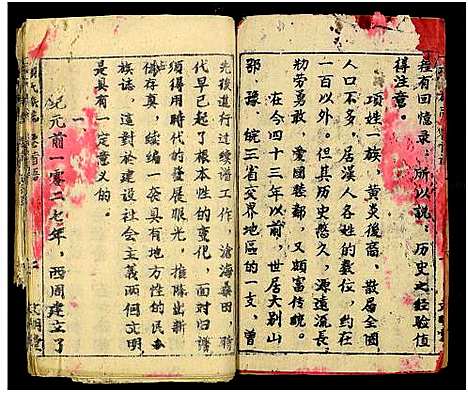 程有回憶录。所以说：历史之经验值
得注意。
項姓一族，黄炎後裔，散居全國
各，居漢人各姓的義位，約在
一百以外。但其历史悠久，源遠流長
勤劳勇敢，愛國艱都，又頗富傳統。
在公四十三年以前，世居大别山
鄂、豫、皖三省交界地區的一支，曾
先後進行过續譜工作，滄海桑田，
代早已起了根本性的变化，面对旧譜
須得用時代的发展眼光，推陈出新
存真，续编一套具有地方性的民
族誌，這對於建设社会主義两個文明，
是具有一定意义的。
一
紀元前一零二七年，西周建立了
項氏族譜
文明堂